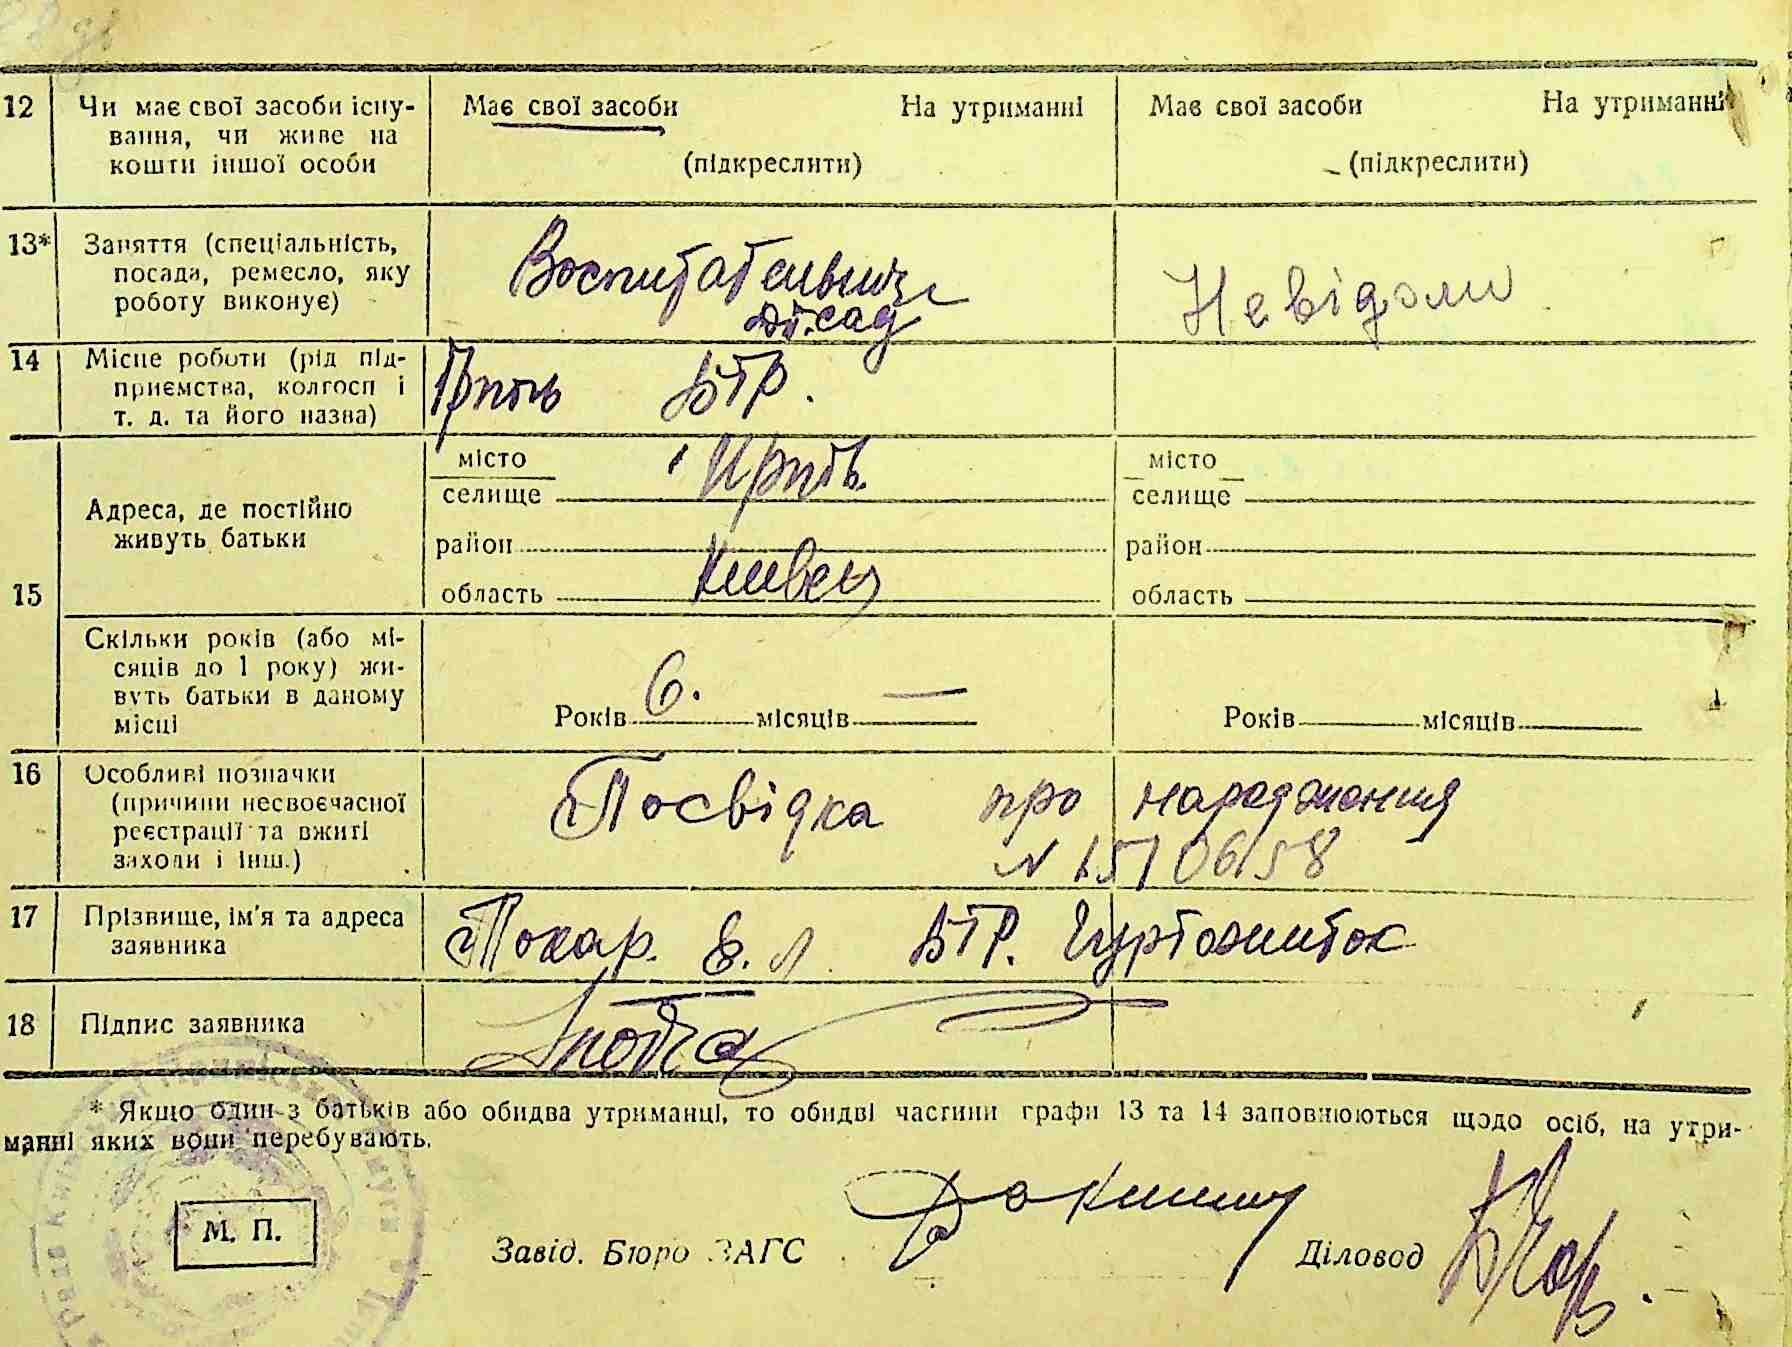 12 Чи має свої засоби існу-
вання, чи живе на
кошти іншої особи
Має свої засоби На утриманні
(підкреслити)
Має свої засоби На утриманні
(підкреслити)
13* Заняття (спеціальність,
посада, ремесло, яку
роботу виконує)
дит. сад
Невідомі
14 Місце роботи (рід під-
приємства, колгосп і
т. д. та його назва)
Ірпінь БТР.
15 Адреса, де постійно
живуть батьки
місто Ірпінь
селище
район
область Київськ
місто
селище
район
область
Скільки років (або мі-
сяців до 1 року) жи-
вуть батьки в даному
місці
Років 6. місяців —
Років місяців
16 Особливі позначки
(причини несвоєчасної
реєстрації та вжиті
заходи і інш.)
Посвідка про народження
N 1510658
17 Прізвище, ім'я та адреса
заявника
Токар. Є. Л. БТР. Гуртожиток
18 Підпис заявника
* Якщо один з батьків або обидва утриманці, то обидві частини графи 13 та 14 заповнюються щодо осіб, на утри-
манні яких вони перебувають.
М. П.
Завід. Бюро ЗАГС
Діловод